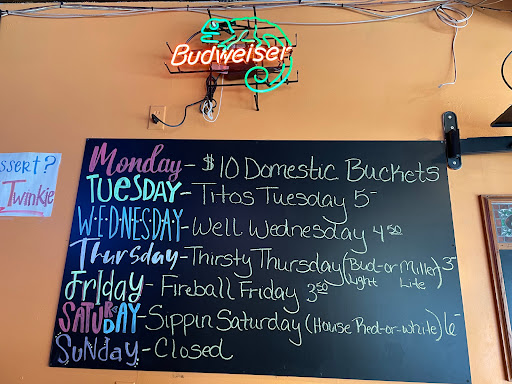 Budweiser
ssert?
Twinkie
Monday - $10 Domestic Buckets
TUESDAY - Titos Tuesday 5-
WEDNESDAY - Well Wednesday 4 50
Thursday - Thirsty Thursday (Bud-or Miller) 3-
Light Lite
Friday - Fireball Friday 3 50
SATURDAY - Sippin Saturday (House Red-or-white) 6-
SuNday - Closed